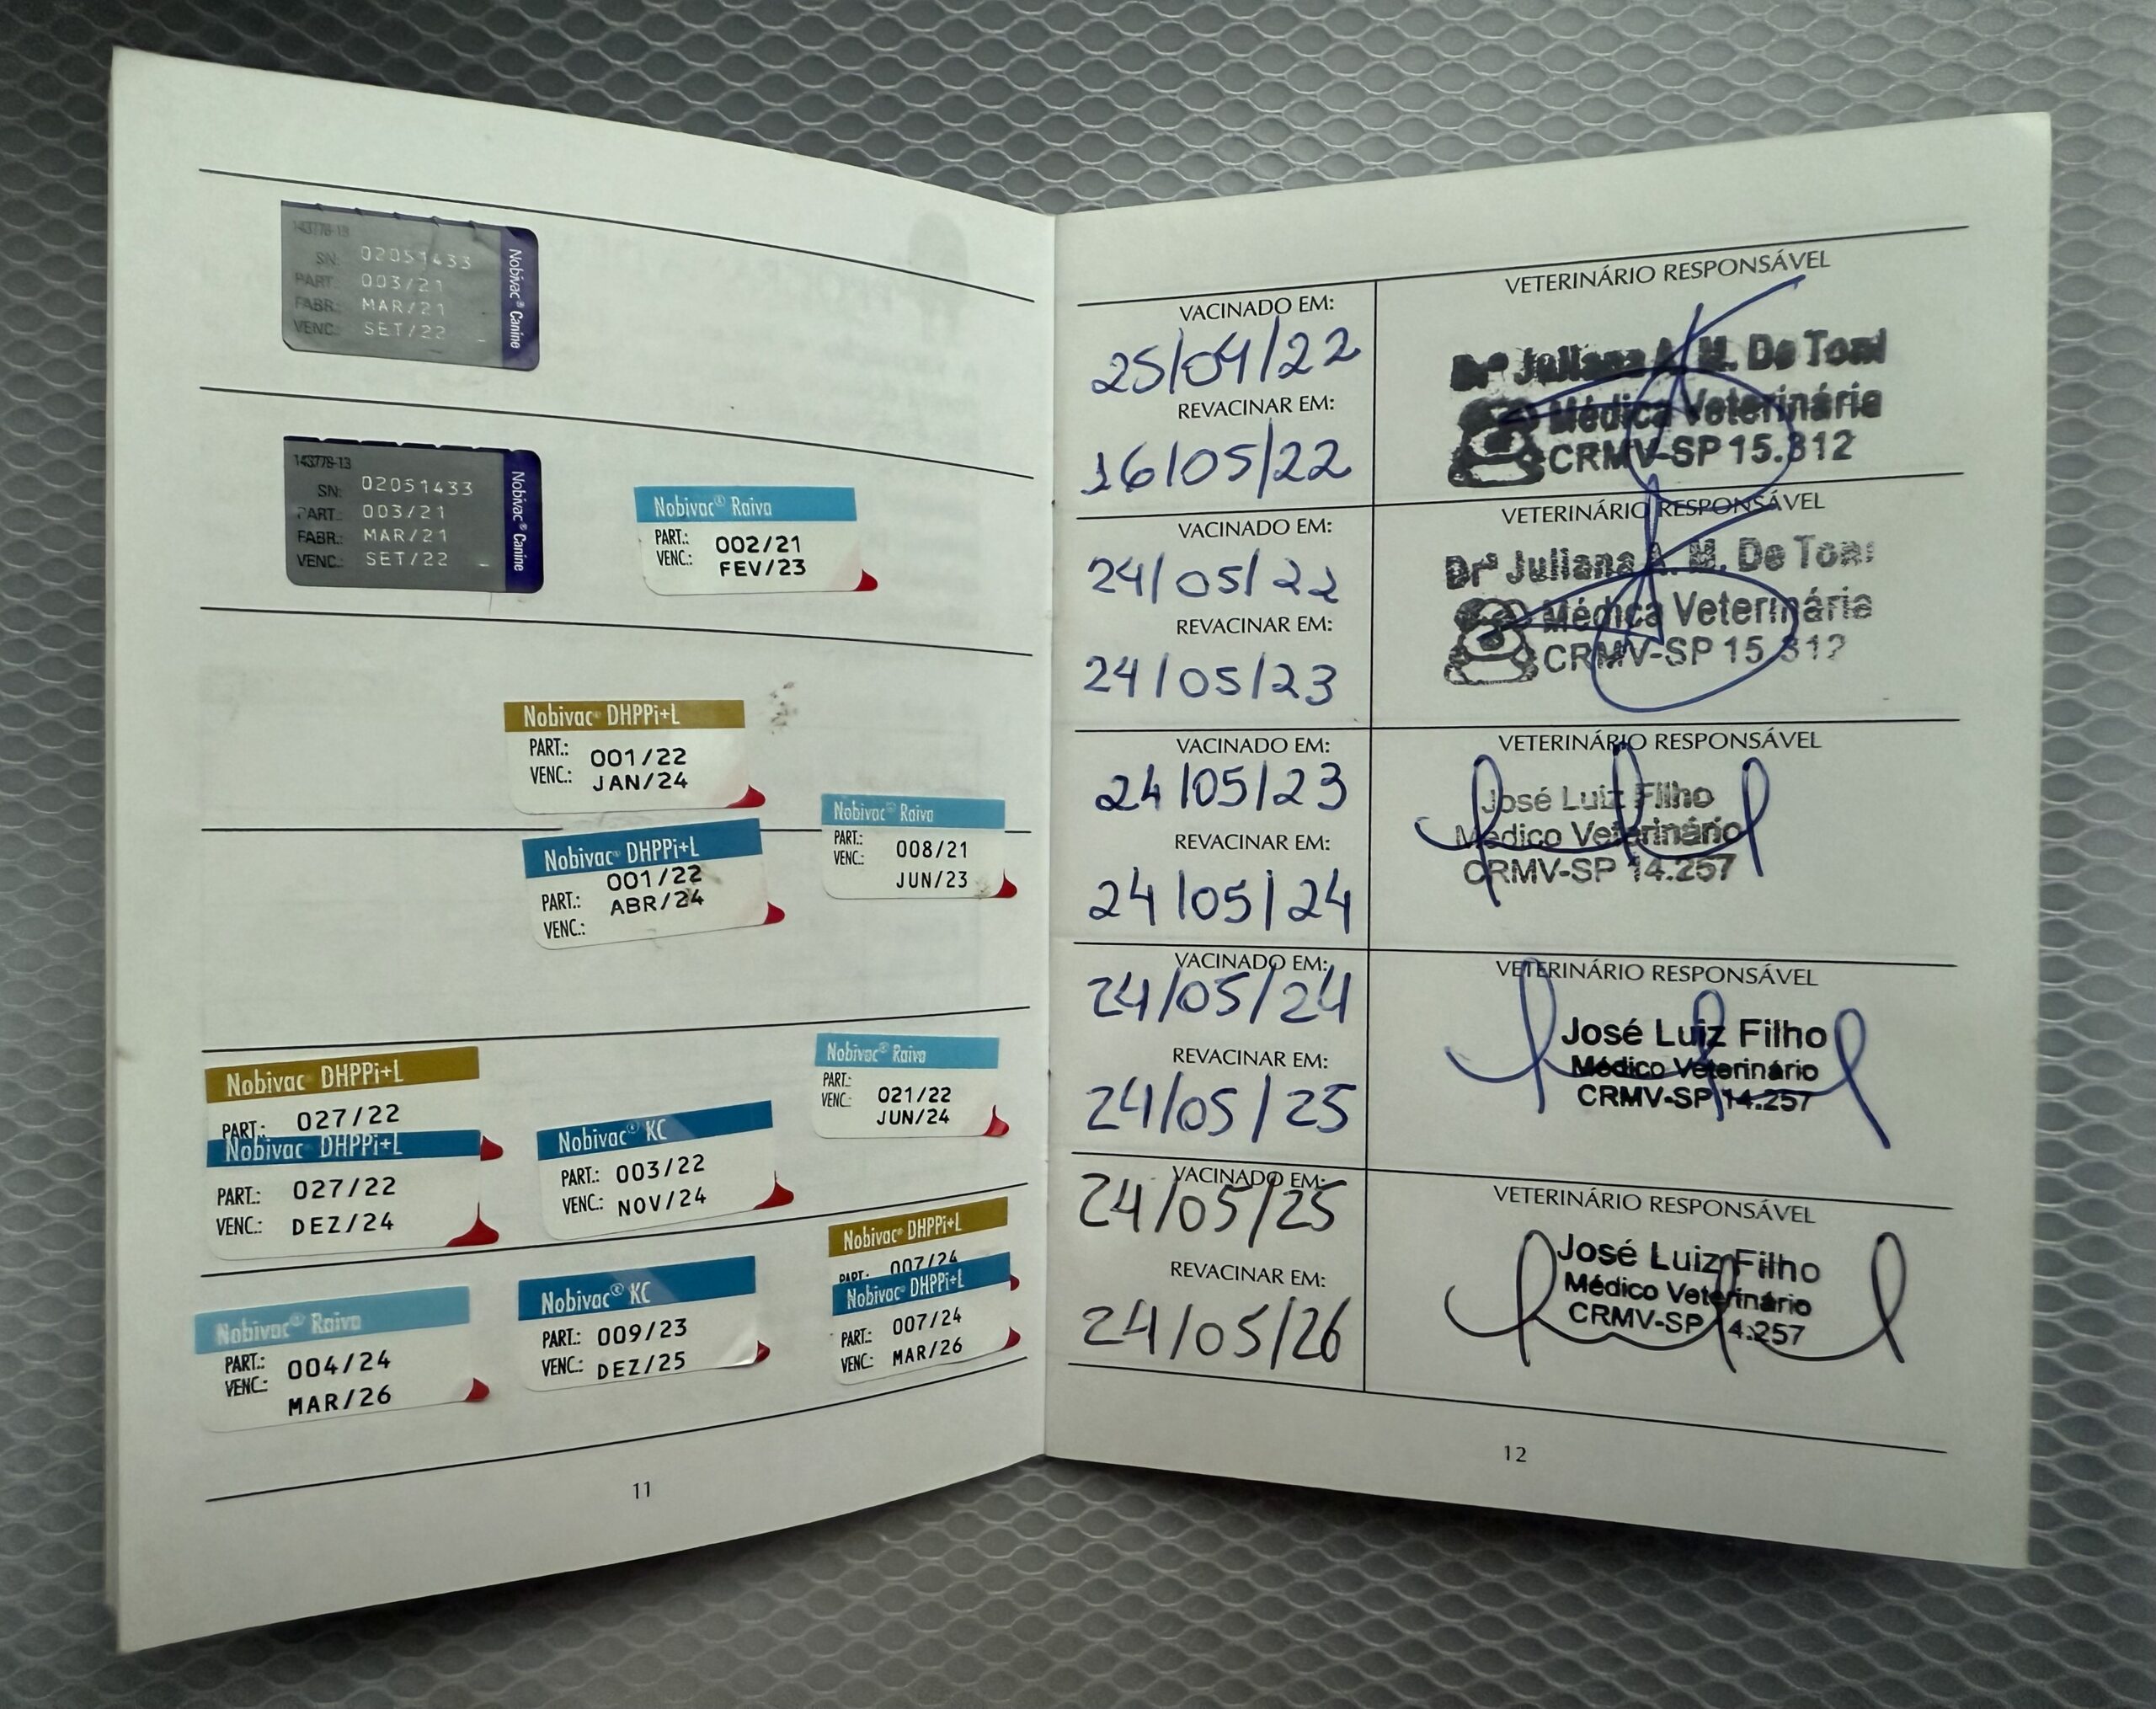 143778-13
SN: 02051433
PART: 003/21
FABR.: MAR/21
VENC.: SET/22
Nobivac® Canine
143778-13
SN: 02051433
PART.: 003/21
FABR.: MAR/21
VENC.: SET/22
Nobivac® Canine
Nobivac® Raiva
PART.: 002/21
VENC.: FEV/23
Nobivac® DHPPi+L
PART.: 001/22
VENC.: JAN/24
Nobivac® DHPPi+L
001/22
PART.: ABR/24
VENC.:
Nobivac® Raiva
PART.: 008/21
VENC.: JUN/23
Nobivac DHPPi+L
PART.: 027/22
Nobivac DHPPi+L
PART.: 027/22
VENC.: DEZ/24
Nobivac® KC
PART.: 003/22
VENC.: NOV/24
Nobivac® Raiva
PART.: 021/22
VENC.: JUN/24
Nobivac® Raiva
PART.: 004/24
VENC.: MAR/26
Nobivac® KC
PART.: 009/23
VENC.: DEZ/25
Nobivac® DHPPi+L
PART.: 007/24
Nobivac® DHPPi+L
PART.: 007/24
VENC.: MAR/26
11
VACINADO EM:
25/04/22
REVACINAR EM:
16/05/22
VETERINÁRIO RESPONSÁVEL
Drª Juliana A. M. De Toni
Médica Veterinária
CRMV-SP 15.312
VACINADO EM:
24/05/22
REVACINAR EM:
24/05/23
VETERINÁRIO RESPONSÁVEL
Drª Juliana A. M. De Toni
Médica Veterinária
CRMV-SP 15.312
VACINADO EM:
24/05/23
REVACINAR EM:
24/05/24
VETERINÁRIO RESPONSÁVEL
José Luiz Filho
Médico Veterinário
CRMV-SP 14.257
VACINADO EM:
24/05/24
REVACINAR EM:
24/05/25
VETERINÁRIO RESPONSÁVEL
José Luiz Filho
Médico Veterinário
CRMV-SP 14.257
VACINADO EM:
24/05/25
REVACINAR EM:
24/05/26
VETERINÁRIO RESPONSÁVEL
José Luiz Filho
Médico Veterinário
CRMV-SP 14.257
12